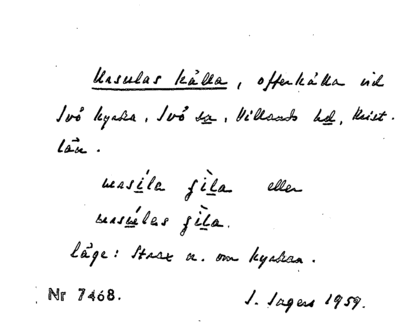 Ursulas källa, offerkälla vid
Ivö kyrka, Ivö sn, Villands hd, Krist.
län.
ursíla ʃì̱la eller
ursúlas ʃì̱la.
läge: Strax n. om kyrkan.
Nr 7468. I. Ingers 1959.